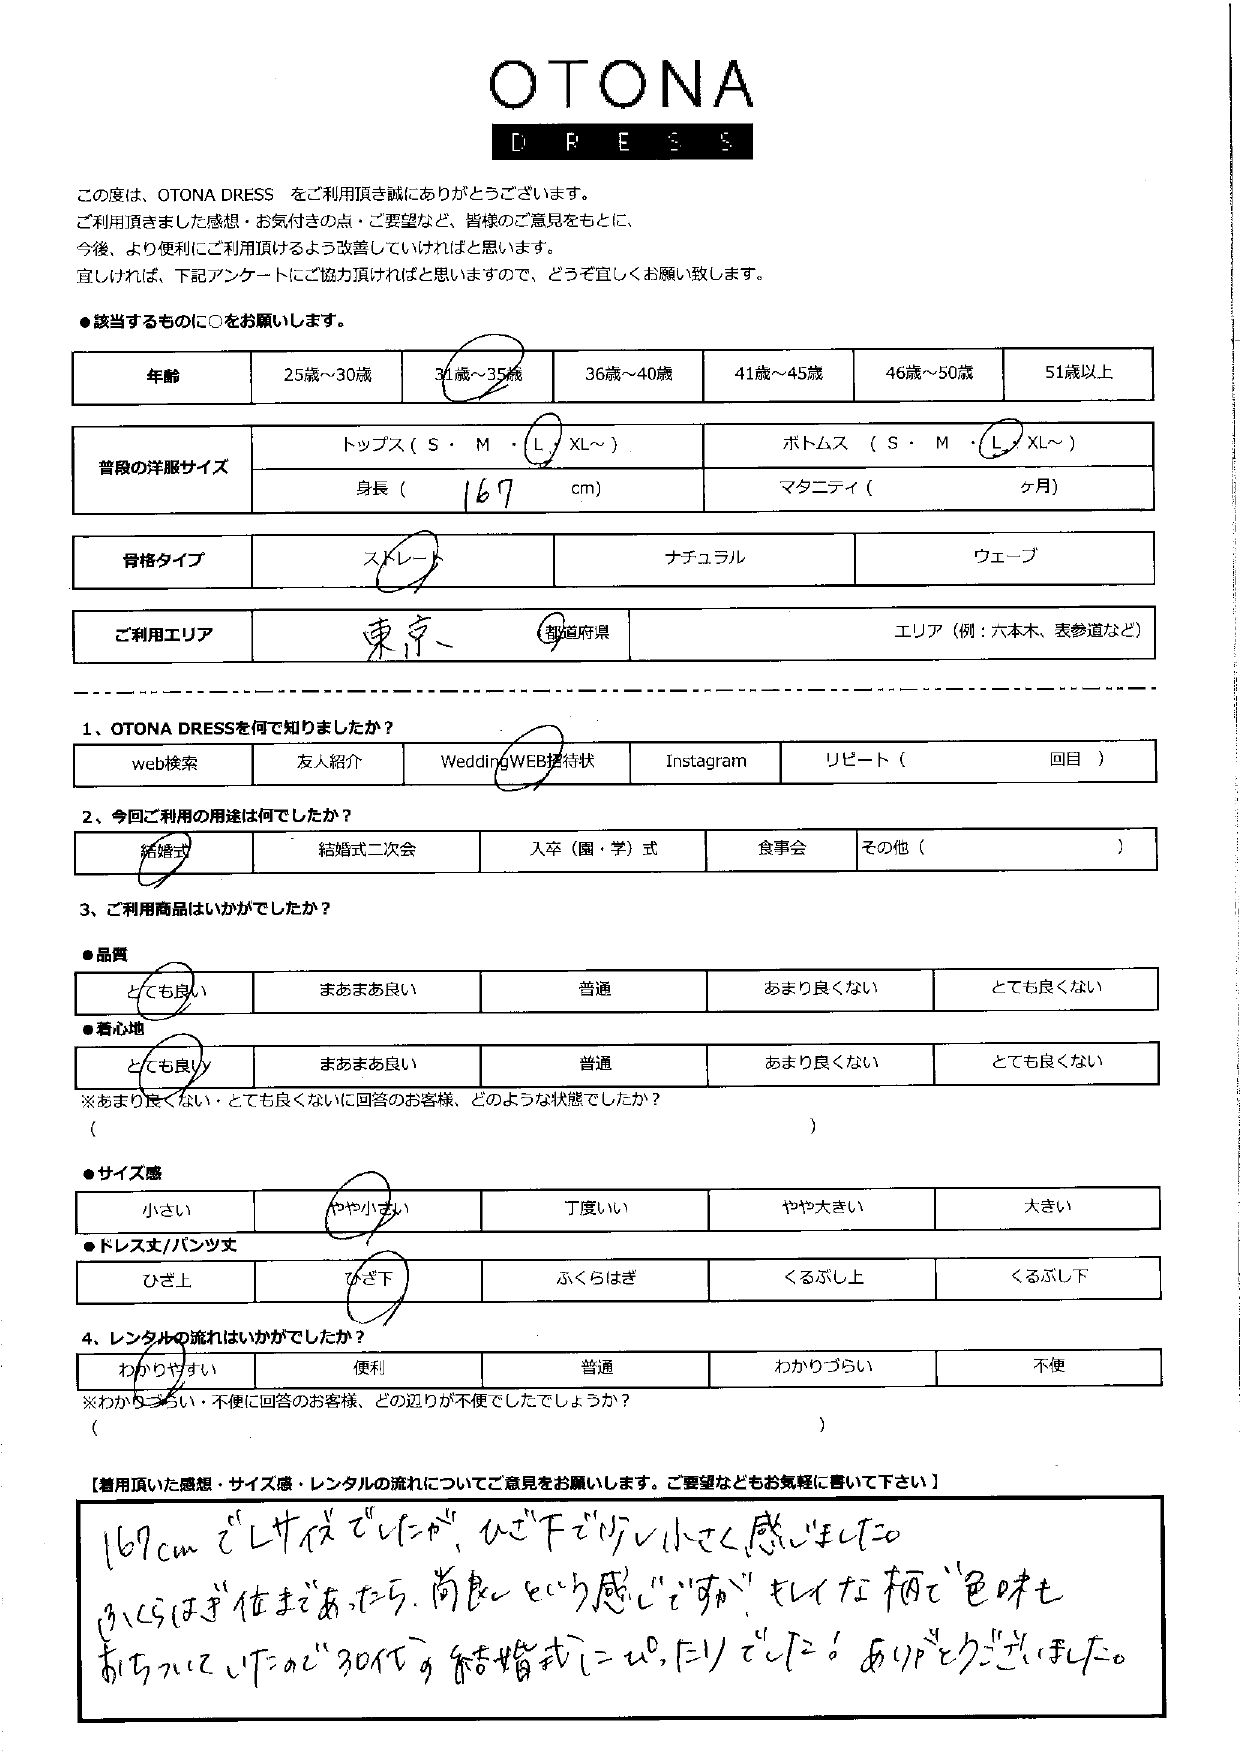 OTONA
DRESS
この度は、OTONA DRESS　をご利用頂き誠にありがとうございます。
ご利用頂きました感想・お気付きの点・ご要望など、皆様のご意見をもとに、
今後、より便利にご利用頂けるよう改善していければと思います。
宜しければ、下記アンケートにご協力頂ければと思いますので、どうぞ宜しくお願い致します。
●該当するものに○をお願いします。
年齢 25歳～30歳 31歳～35歳 36歳～40歳 41歳～45歳 46歳～50歳 51歳以上
普段の洋服サイズ トップス ( S ・ M ・ L ・ XL～ ) ボトムス ( S ・ M ・ L ・ XL～ )
身長 ( 167 cm) マタニティ ( ヶ月)
骨格タイプ ストレート ナチュラル ウェーブ
ご利用エリア 東京 都道府県 エリア（例：六本木、表参道など）
1、OTONA DRESSを何で知りましたか？
web検索 友人紹介 WeddingWEB招待状 Instagram リピート ( 回目 )
2、今回ご利用の用途は何でしたか？
結婚式 結婚式二次会 入卒（園・学）式 食事会 その他 ( )
3、ご利用商品はいかがでしたか？
●品質
とても良い まあまあ良い 普通 あまり良くない とても良くない
●着心地
とても良い まあまあ良い 普通 あまり良くない とても良くない
※あまり良くない・とても良くないに回答のお客様、どのような状態でしたか？
( )
●サイズ感
小さい やや小さい 丁度いい やや大きい 大きい
●ドレス丈/パンツ丈
ひざ上 ひざ下 ふくらはぎ くるぶし上 くるぶし下
4、レンタルの流れはいかがでしたか？
わかりやすい 便利 普通 わかりづらい 不便
※わかりづらい・不便に回答のお客様、どの辺りが不便でしたでしょうか？
( )
【着用頂いた感想・サイズ感・レンタルの流れについてご意見をお願いします。ご要望などもお気軽に書いて下さい】
167cmでLサイズでしたが、ひざ下で少し小さく感じました。
ふくらはぎ位まであったら、尚良しという感じですが、キレイな柄で色味も
おちついていたので30代の結婚式にぴったりでした！ありがとうございました。